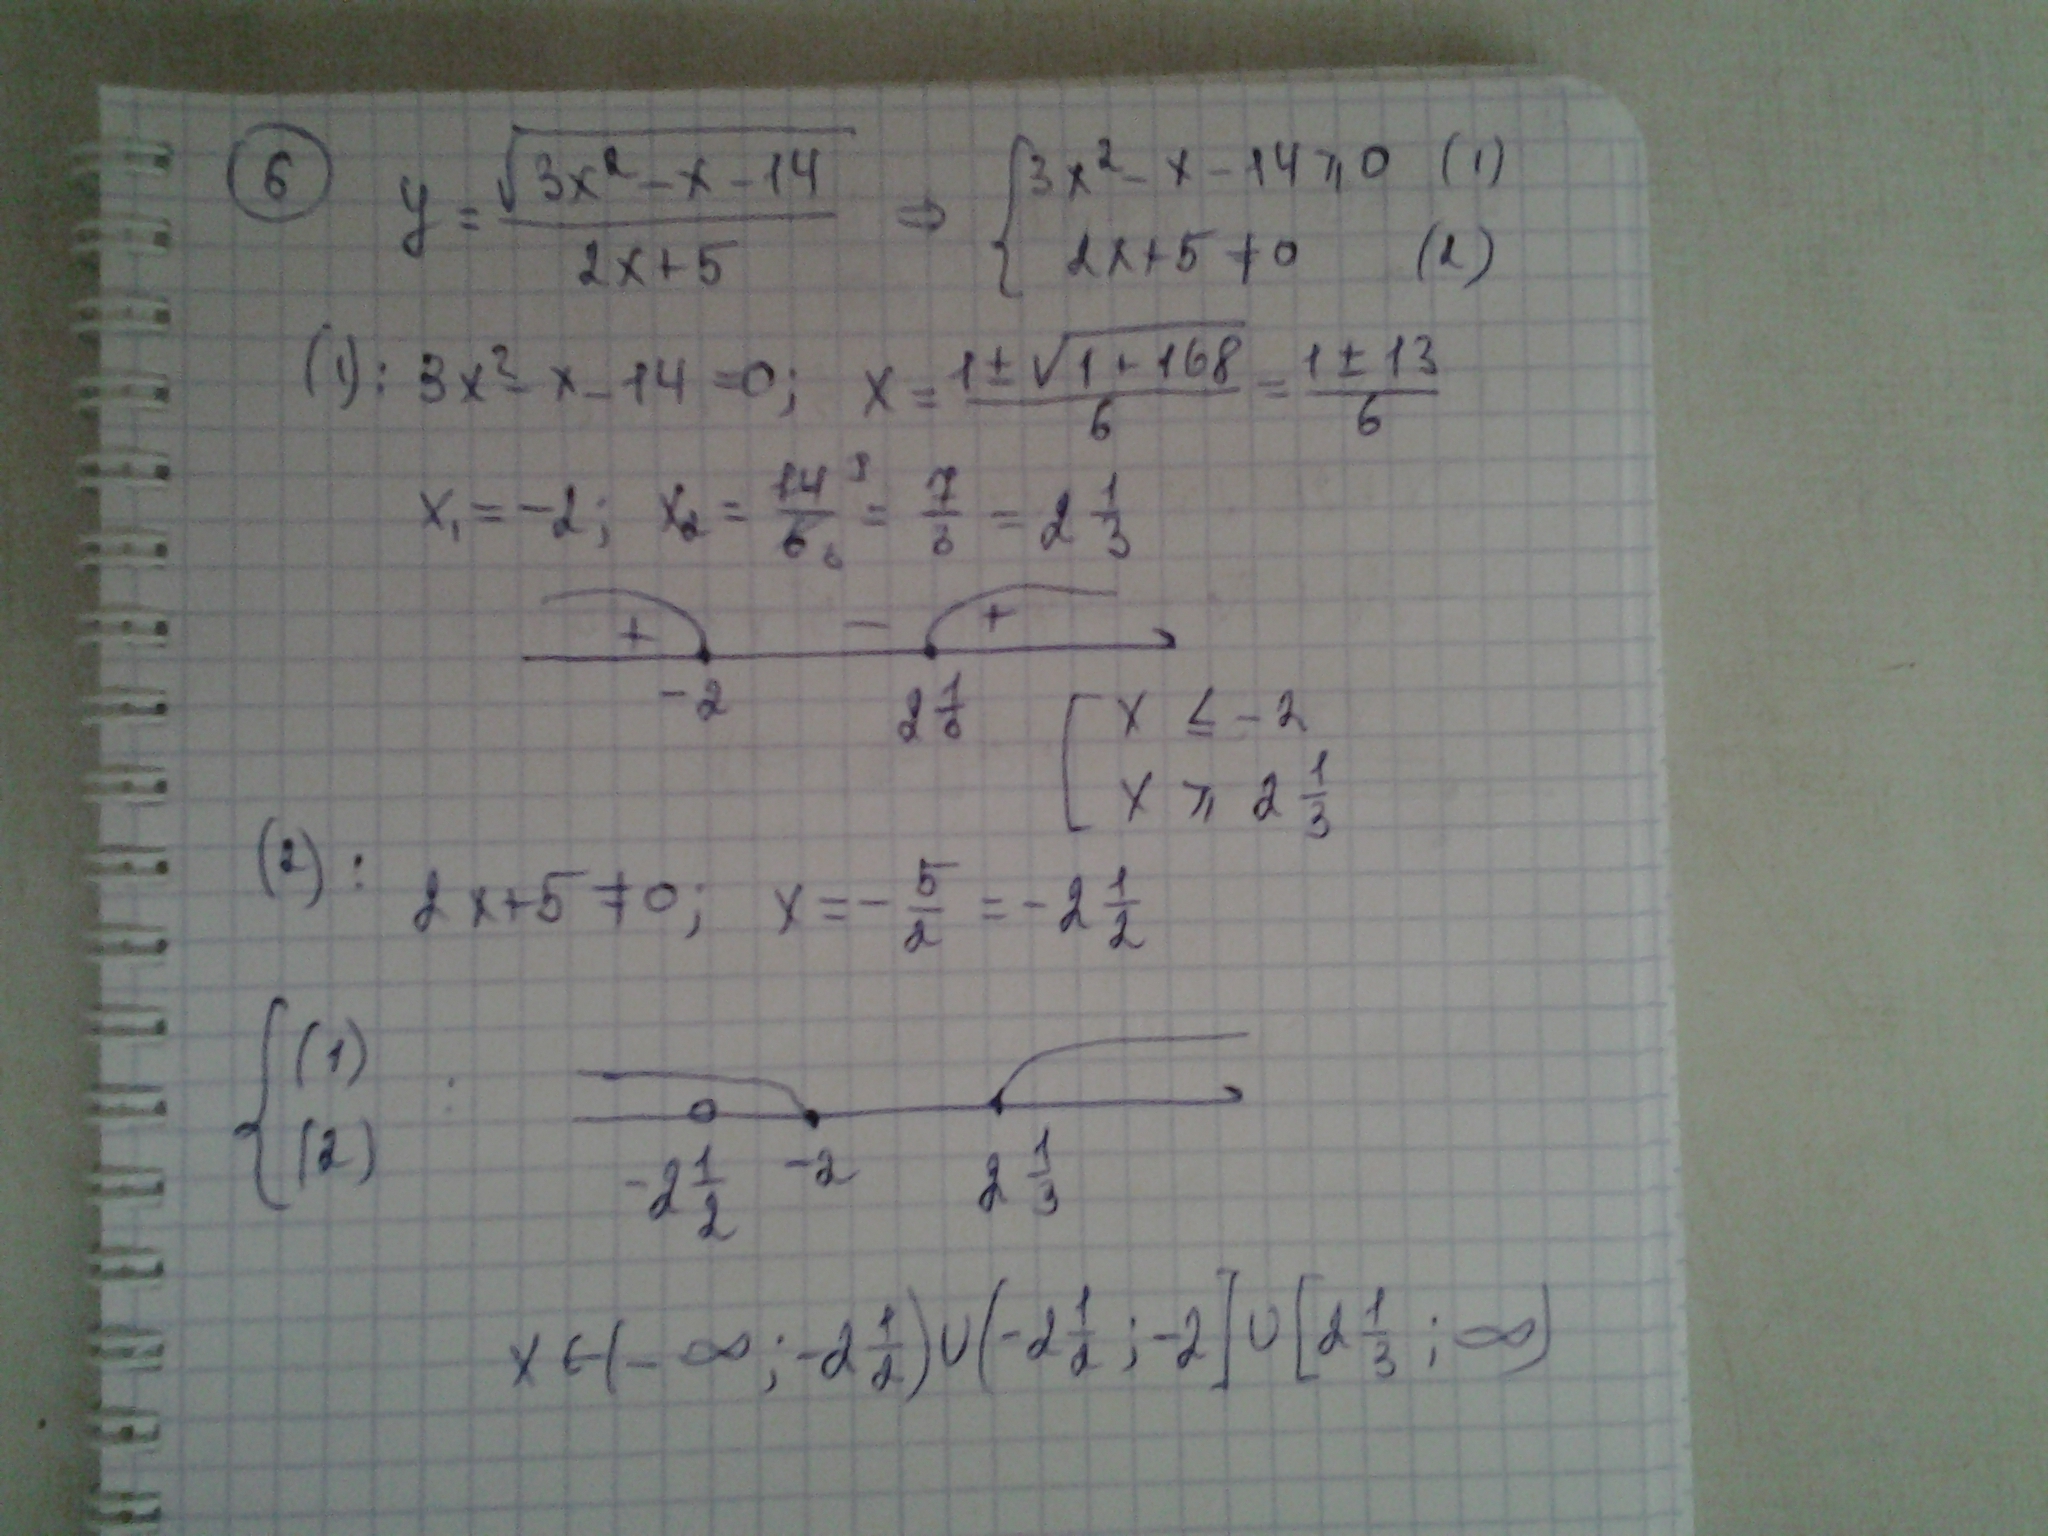 6 y = √(3x² - x - 14) / (2x+5) ⇒ { 3x² - x - 14 ⩾ 0 (1)
2x+5 ≠ 0 (2)
(1): 3x² - x - 14 = 0; x = (1 ± √(1 + 168)) / 6 = (1 ± 13) / 6
x₁ = -2; x₂ = 14/6 = 7/3 = 2 1/3
+ - +
-2 2 1/3
[ x ≤ -2
x ⩾ 2 1/3
(2): 2x+5 ≠ 0; x = - 5/2 = -2 1/2
{ (1)
(2) :
-2 1/2 -2 2 1/3
x ∈ (-∞; -2 1/2) ∪ (-2 1/2; -2] ∪ [2 1/3; ∞)